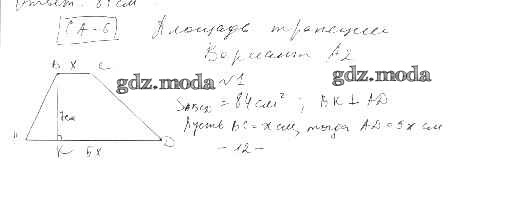 Ответ: 81 см
СА-6 Площадь трапеции
Вариант А2
B x C
№1
gdz.moda
gdz.moda
S ABCD = 84 см² ; BK ⊥ AD
7см
Пусть BC = x см, тогда AD = 5x см
K 5x D
- 12 -